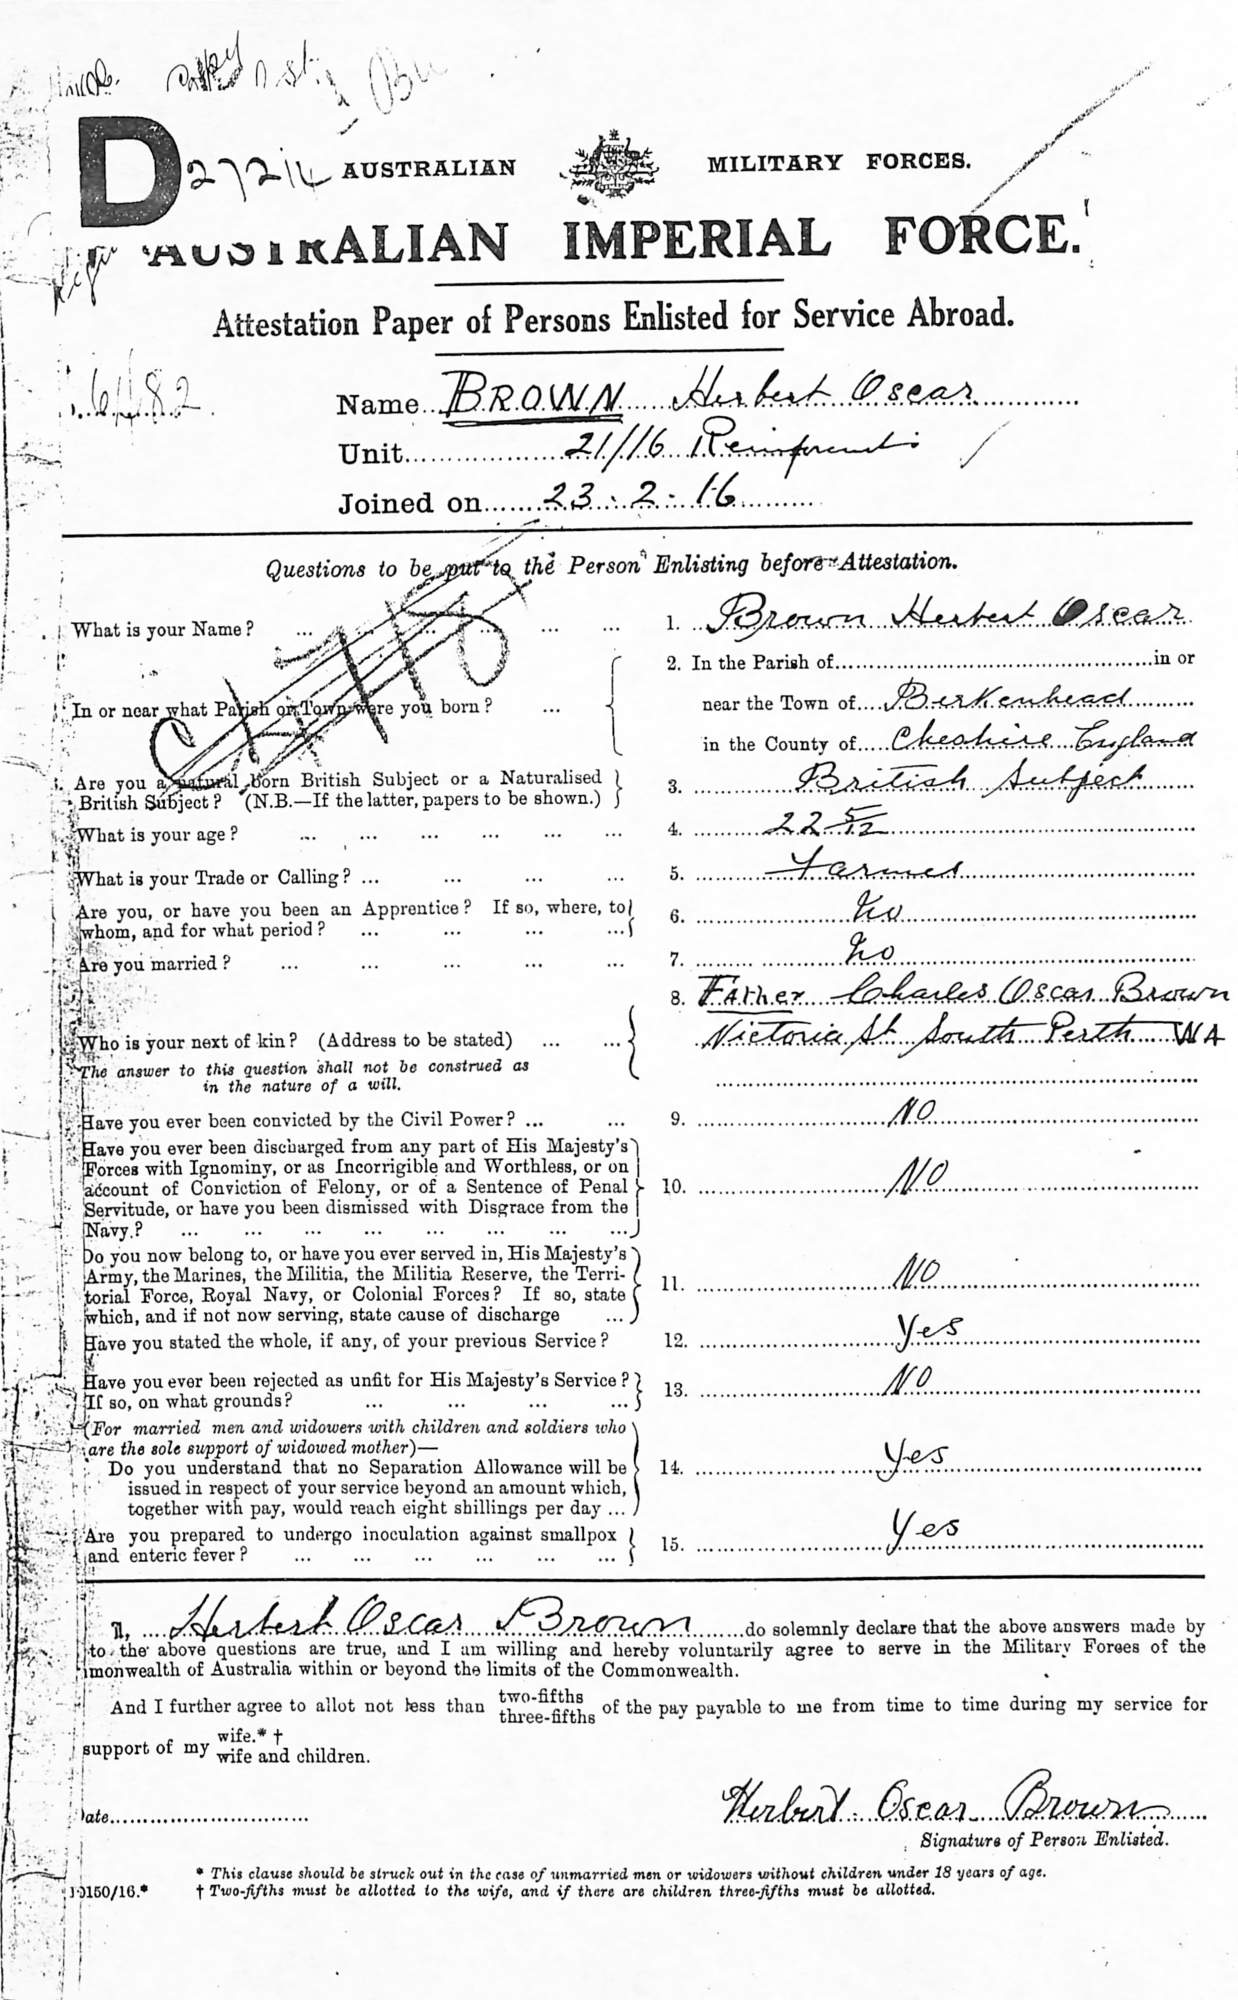 D 27214 AUSTRALIAN MILITARY FORCES.
AUSTRALIAN IMPERIAL FORCE.
Attestation Paper of Persons Enlisted for Service Abroad.
6482
Name BROWN Herbert Oscar
Unit 21/16 Reinforcements
Joined on 23.2.16
Questions to be put to the Person Enlisting before Attestation.
What is your Name? ... ... ... ... ... 1. Brown Herbert Oscar
In or near what Parish or Town were you born? ... 2. In the Parish of in or
near the Town of Berkenhead
in the County of Cheshire England
Are you a natural born British Subject or a Naturalised
British Subject? (N.B.—If the latter, papers to be shown.) 3. British Subject
What is your age? ... ... ... ... ... ... 4. 22 5/12
What is your Trade or Calling? ... ... ... ... 5. Farmer
Are you, or have you been an Apprentice? If so, where, to
whom, and for what period? ... ... ... ... 6. No
Are you married? ... ... ... ... ... 7. No
8. Father Charles Oscar Brown
Who is your next of kin? (Address to be stated) ... ... Victoria St South Perth WA
The answer to this question shall not be construed as
in the nature of a will.
Have you ever been convicted by the Civil Power? ... ... 9. NO
Have you ever been discharged from any part of His Majesty's
Forces with Ignominy, or as Incorrigible and Worthless, or on
account of Conviction of Felony, or of a Sentence of Penal 10. NO
Servitude, or have you been dismissed with Disgrace from the
Navy? ... ... ... ... ... ... ... ...
Do you now belong to, or have you ever served in, His Majesty's
Army, the Marines, the Militia, the Militia Reserve, the Terri-
torial Force, Royal Navy, or Colonial Forces? If so, state 11. NO
which, and if not now serving, state cause of discharge ...
Have you stated the whole, if any, of your previous Service? 12. Yes
Have you ever been rejected as unfit for His Majesty's Service? 13. NO
If so, on what grounds? ... ... ... ...
(For married men and widowers with children and soldiers who
are the sole support of widowed mother)—
Do you understand that no Separation Allowance will be 14. Yes
issued in respect of your service beyond an amount which,
together with pay, would reach eight shillings per day ...
Are you prepared to undergo inoculation against smallpox
and enteric fever? ... ... ... ... ... ... 15. Yes
I, Herbert Oscar Brown do solemnly declare that the above answers made by
to the above questions are true, and I am willing and hereby voluntarily agree to serve in the Military Forces of the
monwealth of Australia within or beyond the limits of the Commonwealth.
And I further agree to allot not less than two-fifths three-fifths of the pay payable to me from time to time during my service for
support of my wife.* † wife and children.
Date Herbert Oscar Brown
Signature of Person Enlisted.
* This clause should be struck out in the case of unmarried men or widowers without children under 18 years of age.
0150/16.* † Two-fifths must be allotted to the wife, and if there are children three-fifths must be allotted.